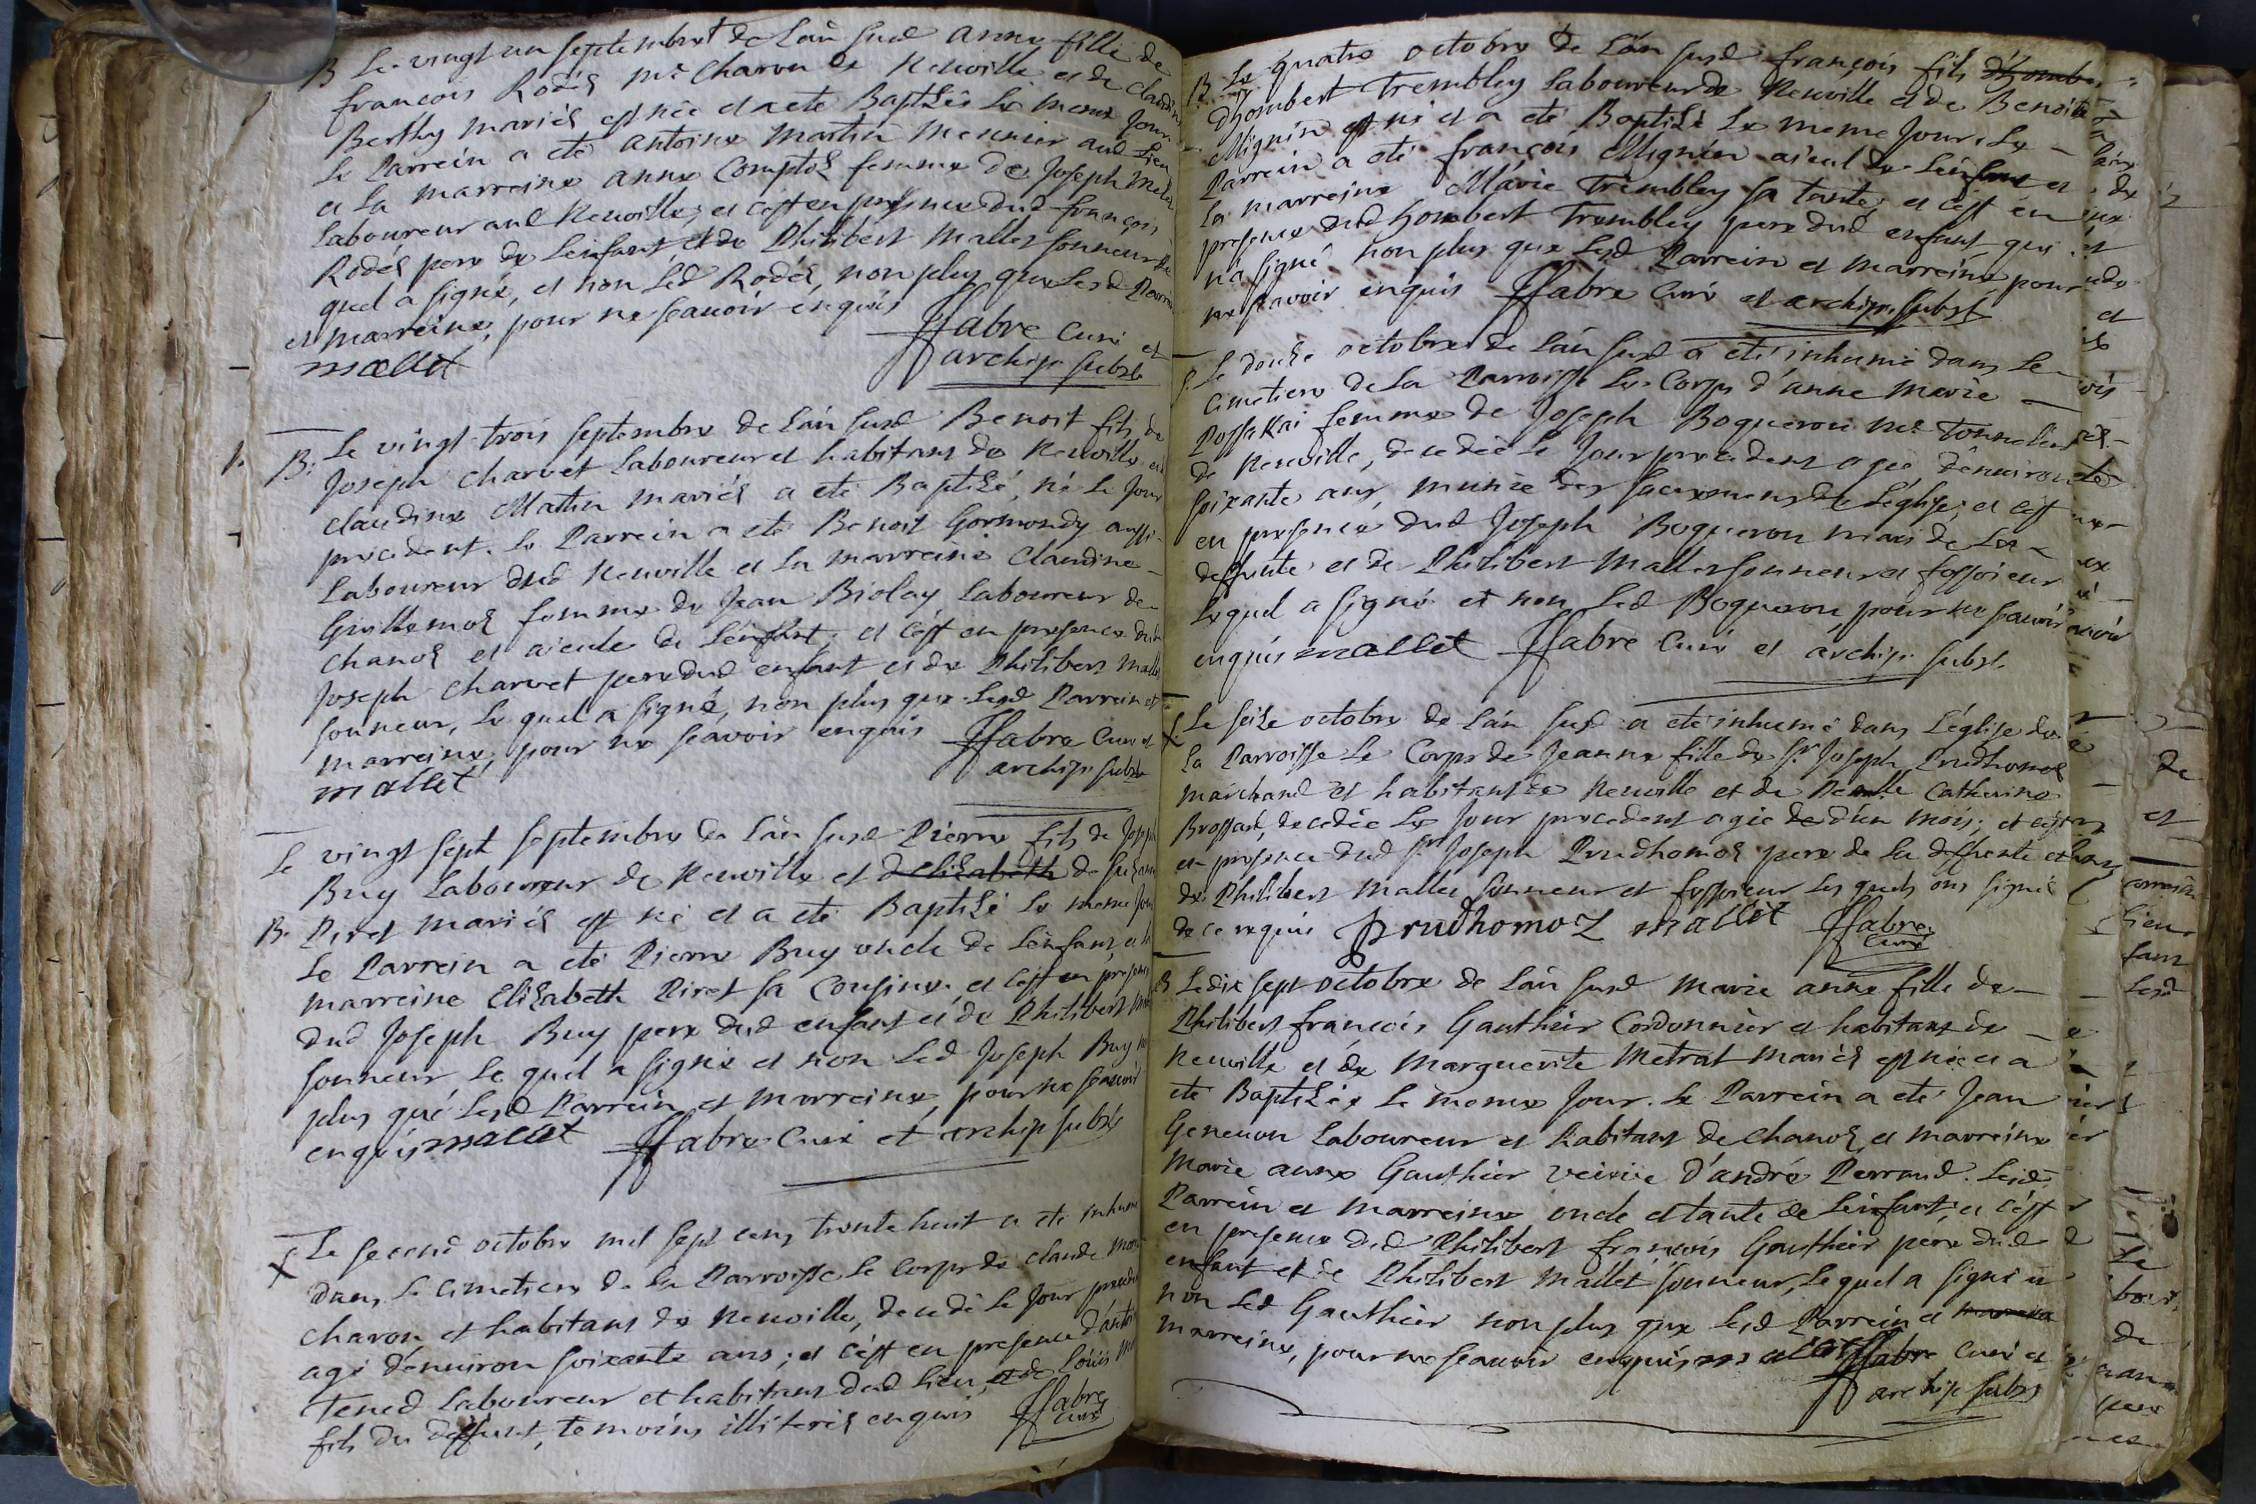 B Le vingt un septembre de l'an susd anne fille de
françois Rodés me Charon de Neuville et de claudine
Berthy mariés est née et a eté Baptisée le meme jour
Le Parrein a eté antoine Martin Meunier aud lieu
et la marreine anne Comptoz femme de Joseph
Laboureur aud Neuville; et c'est en presence dud françois
Rodés pere de l'enfant, et de Philibert Mallet sonneur le
quel a signé, et non led Rodés, non plus que lesd Parrein
et marreine, pour ne sçavoir enquis
mallet
ffabre Curé et
archip. subst
B. Le vingt-trois septembre de l'an susd Benoit fils de
Joseph Charvet Laboureur et habitant de Neuville et
claudine Mathin mariés a eté Baptisé, né le jour
precedent. le Parrein a eté Benoit Gormondy aussi
Laboureur dud Neuville et la marreine Claudine
Guillemoz femme de Jean Biolay Laboureur de
Chanoz et aieule de l'enfant; et c'est en presence dud
Joseph Charvet pere dud enfant et de Philibert Mallet
sonneur, le quel a signé, non plus que lesd Parrein et
marreine, pour ne sçavoir enquis ffabre Curé et
mallet archip. subst
Le vingt sept septembre de l'an susd Pierre fils de Joseph
Buy Laboureur de Neuville et d'elizabeth de suzanne
B. Piret mariés est né et a eté Baptisé le meme jour
Le Parrein a eté Pierre Buy oncle de l'enfant, et la
marreine Elizabeth Piret sa Cousine; et c'est en presence
dud Joseph Buy pere dud enfant et de Philibert
sonneur, le quel a signé et non led Joseph Buy non
plus que lesd Parrein et marreine, pour ne sçavoir
enquis mallet ffabre Curé et archip subst
Le second octobre mil sept cens trente huit a eté inhumé
dans le cimetiere de la Parroisse le Corps de claude
charon et habitant de Neuville, decedé le Jour precedent
agé d'environ soixante ans; et c'est en presence d'antoine
Tened Laboureur et habitant dud lieu, et de Loüis
fils du deffunt, temoins illiterés enquis ffabre
Curé
B. Le quatre octobre de l'an susd françois fils d'hombe
d'hombert Trembley Laboureur de Neuville et de Benoite
Mignin est né et a eté Baptisé le meme Jour. Le
Parrein a eté françois Mignin aieul de l'enfant et
la marreine Marie Trembley sa tante; et c'est en
presence dud hombert Trembley pere dud enfant, qui
n'a signé non plus que lesd Parrein et marreine, pour
ne sçavoir enquis ffabre Curé et archip. subst
Le douze octobre de l'an susd a eté inhumé dans le
Cimetiere de la Parroisse le Corps d'anne Marie
Possakai femme de Joseph Boqueron me Tonnelier
de Neuville, decedée le Jour precedent agée d'environ
soixante ans, munie des sacremens de l'église; et c'est
en presence dud Joseph Boqueron mari de la
deffunte et de Philibert Mallet sonneur et fossoieur
lequel a signé et non led Boqueron, pour ne sçavoir
enquis mallet ffabre Curé et archip. subst.
Le seize octobre de l'an susd a eté inhumé dans l'église de
la Parroisse le Corps de Jeanne fille de sr. Joseph Prudhomoz
marchand et habitant de Neuville et de Catherine
Brossard, decedée le Jour precedent agée de d'un mois; et c'est
en presence dud sr Joseph Prudhomoz pere de la deffunte et
de Philibert Mallet sonneur et fossoieur les quels ons signés
de ce requis Prudhomoz mallet ffabre
Curé
B Le dix sept octobre de l'an susd Marie anne fille de
Philibert françois Gauthier Cordonnier et habitant de
Neuville et de Marguerite Metrat mariés est née et a
eté Baptisée le meme Jour. Le Parrein a eté Jean
Genevon Laboureur et habitant de Chanoz, et marreine
Marie anne Gauthier veuve d'andré Perraud. Lesd
Parrein et marreine oncle et tante de l'enfant; et c'est
en presence dud Philibert françois Gauthier pere dud
enfant et de Philibert Mallet sonneur, le quel a signé et
non led Gauthier non plus que lesd Parrein et marreine
marreine, pour ne sçavoir enquis mallet ffabre Curé et
archip subst